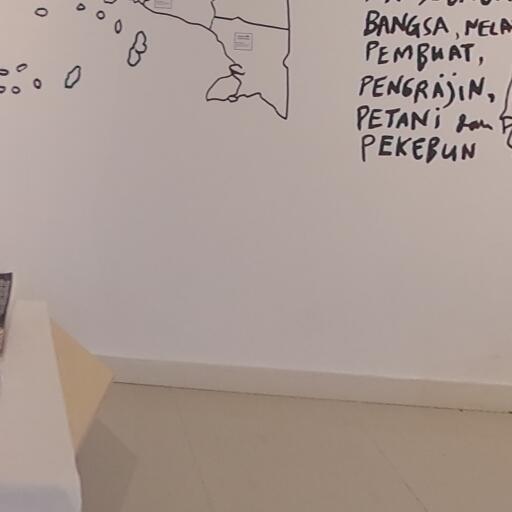 BANGSA,
PEMBUAT,
PENGRAJIN,
PETANI dan
PEKEBUN